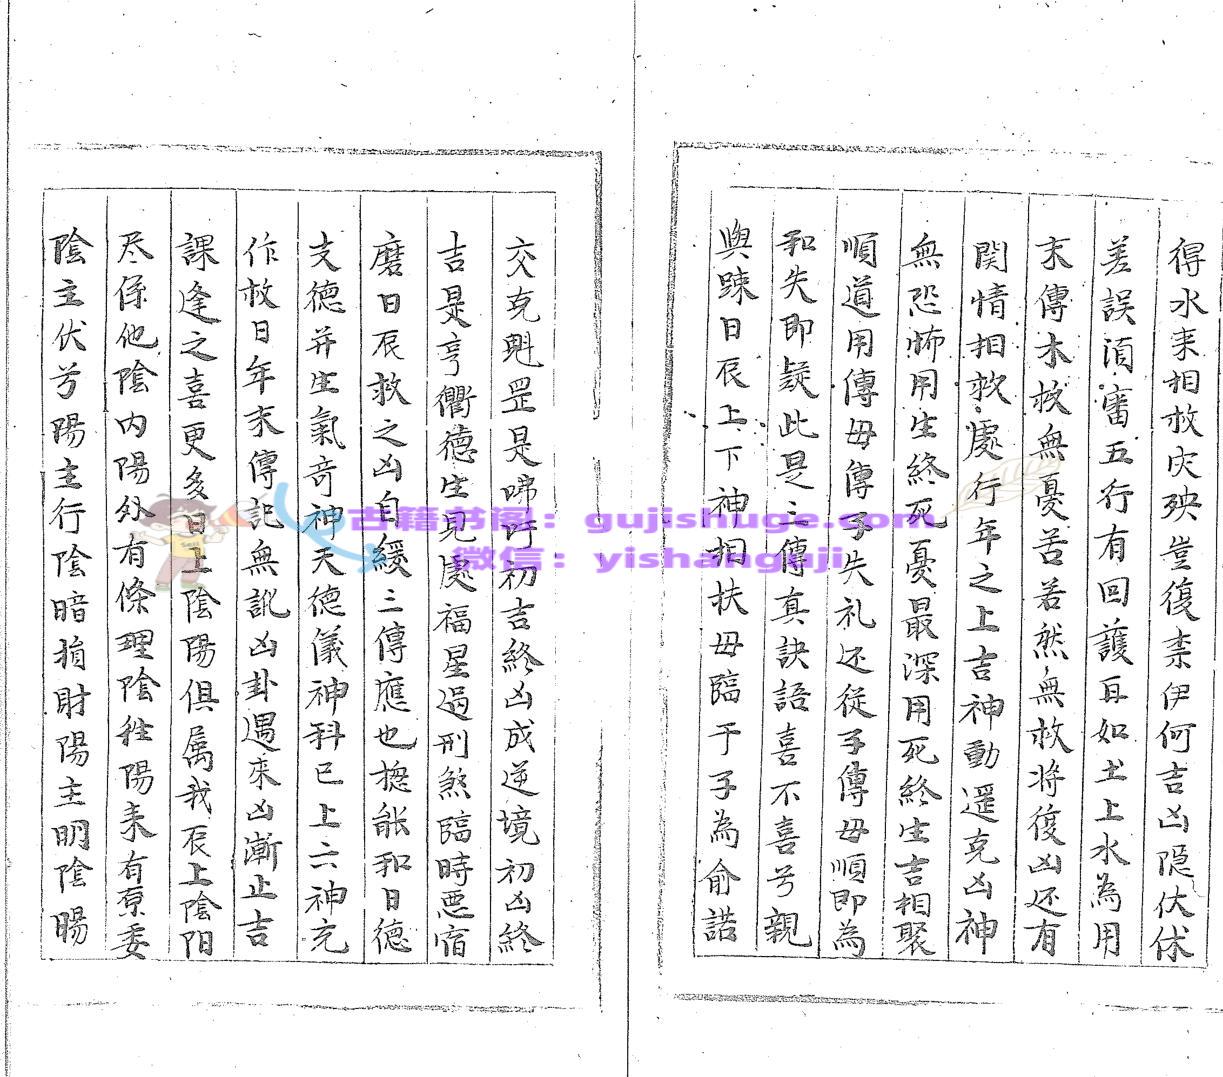 得水来相救灾殃豈復柰伊何吉凶隠伏保
差誤湏審五行有回護且如土上水為用
末傳木救無憂苦若然無救将復凶还有
関情相救處行年之上吉神動遥克凶神
無恐怖用生終死憂最深用死終生吉相聚
順道用傳毋傳子失礼还従子傳毋順即為
和失即疑此是三傳真訣語喜不喜兮親
與踈日辰上下神相扶毋臨于子為俞諾
交克魁罡是啼吁初吉終凶成逆境初凶終
吉是亨衢德生見處福星過刑煞臨時悪宿
磨日辰救之凶自緩三傳應也揔能和日德
支德并生氣奇神天德儀神科已上六神充
作救日年末傳記無訛凶卦遇来凶漸止吉
課逢之喜更多日上陰陽俱属我辰上陰阳
尽係他陰内陽外有條理陰徃陽来有原委
陰主伏兮陽主行陰暗損財陽主明陰陽
古籍书阁：gujishuge.com
微信：yishanguji